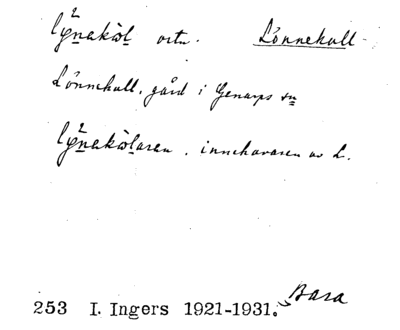 lynakol ortn. Lönnekull
Lönnekull, gård i Genarps sn
lynakolaren, innehavaren av L.
Bara
253 I. Ingers 1921-1931.